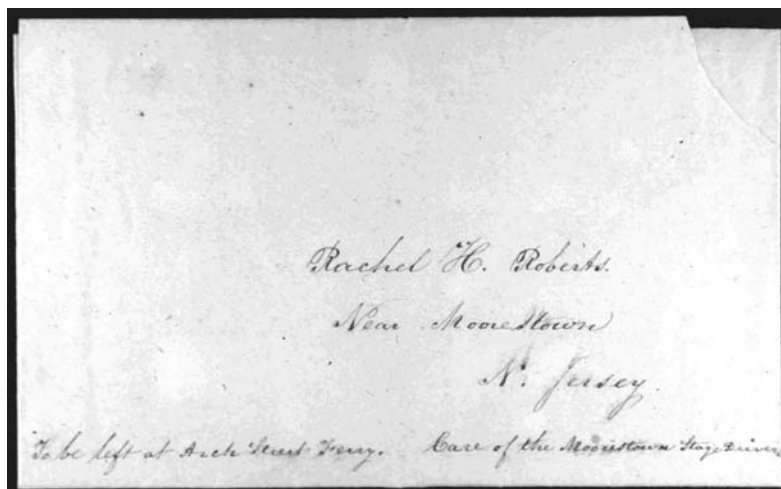 Rachel H. Roberts.
Near Moorestown
N. Jersey.
To be left at Arch Street Ferry. Care of the Moorestown Stage Driver